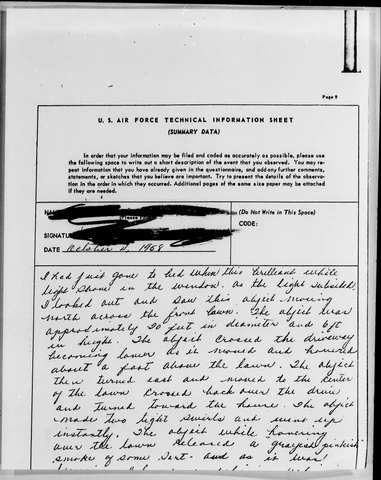 Page 9
U. S. AIR FORCE TECHNICAL INFORMATION SHEET
(SUMMARY DATA)
In order that your information may be filed and coded as accurately as possible, please use
the following space to write out a short description of the event that you observed. You may re-
peat information that you have already given in the questionnaire, and add any further comments,
statements, or sketches that you believe are important. Try to present the details of the observa-
tion in the order in which they occurred. Additional pages of the same size paper may be attached
if they are needed.
(Please
(Do Not Write in This Space)
CODE:
SIGNATU
DATE October 4, 1958
I had just gone to bed when this brilliant white
light shone in the window. As the light subsided,
I looked out and saw this object moving
north across the front lawn. The object was
approximately 20 feet in diameter and 6 ft
in height. The object crossed the driveway
becoming lower as it moved and hovered
about a foot above the lawn. The object
then turned east and moved to the center
of the lawn crossed back over the drive
and turned toward the house. The object
made two light swirls and went up
instantly. The object while hovering
over the lawn released a grayish pinkish
smoke of some sort - and as it was